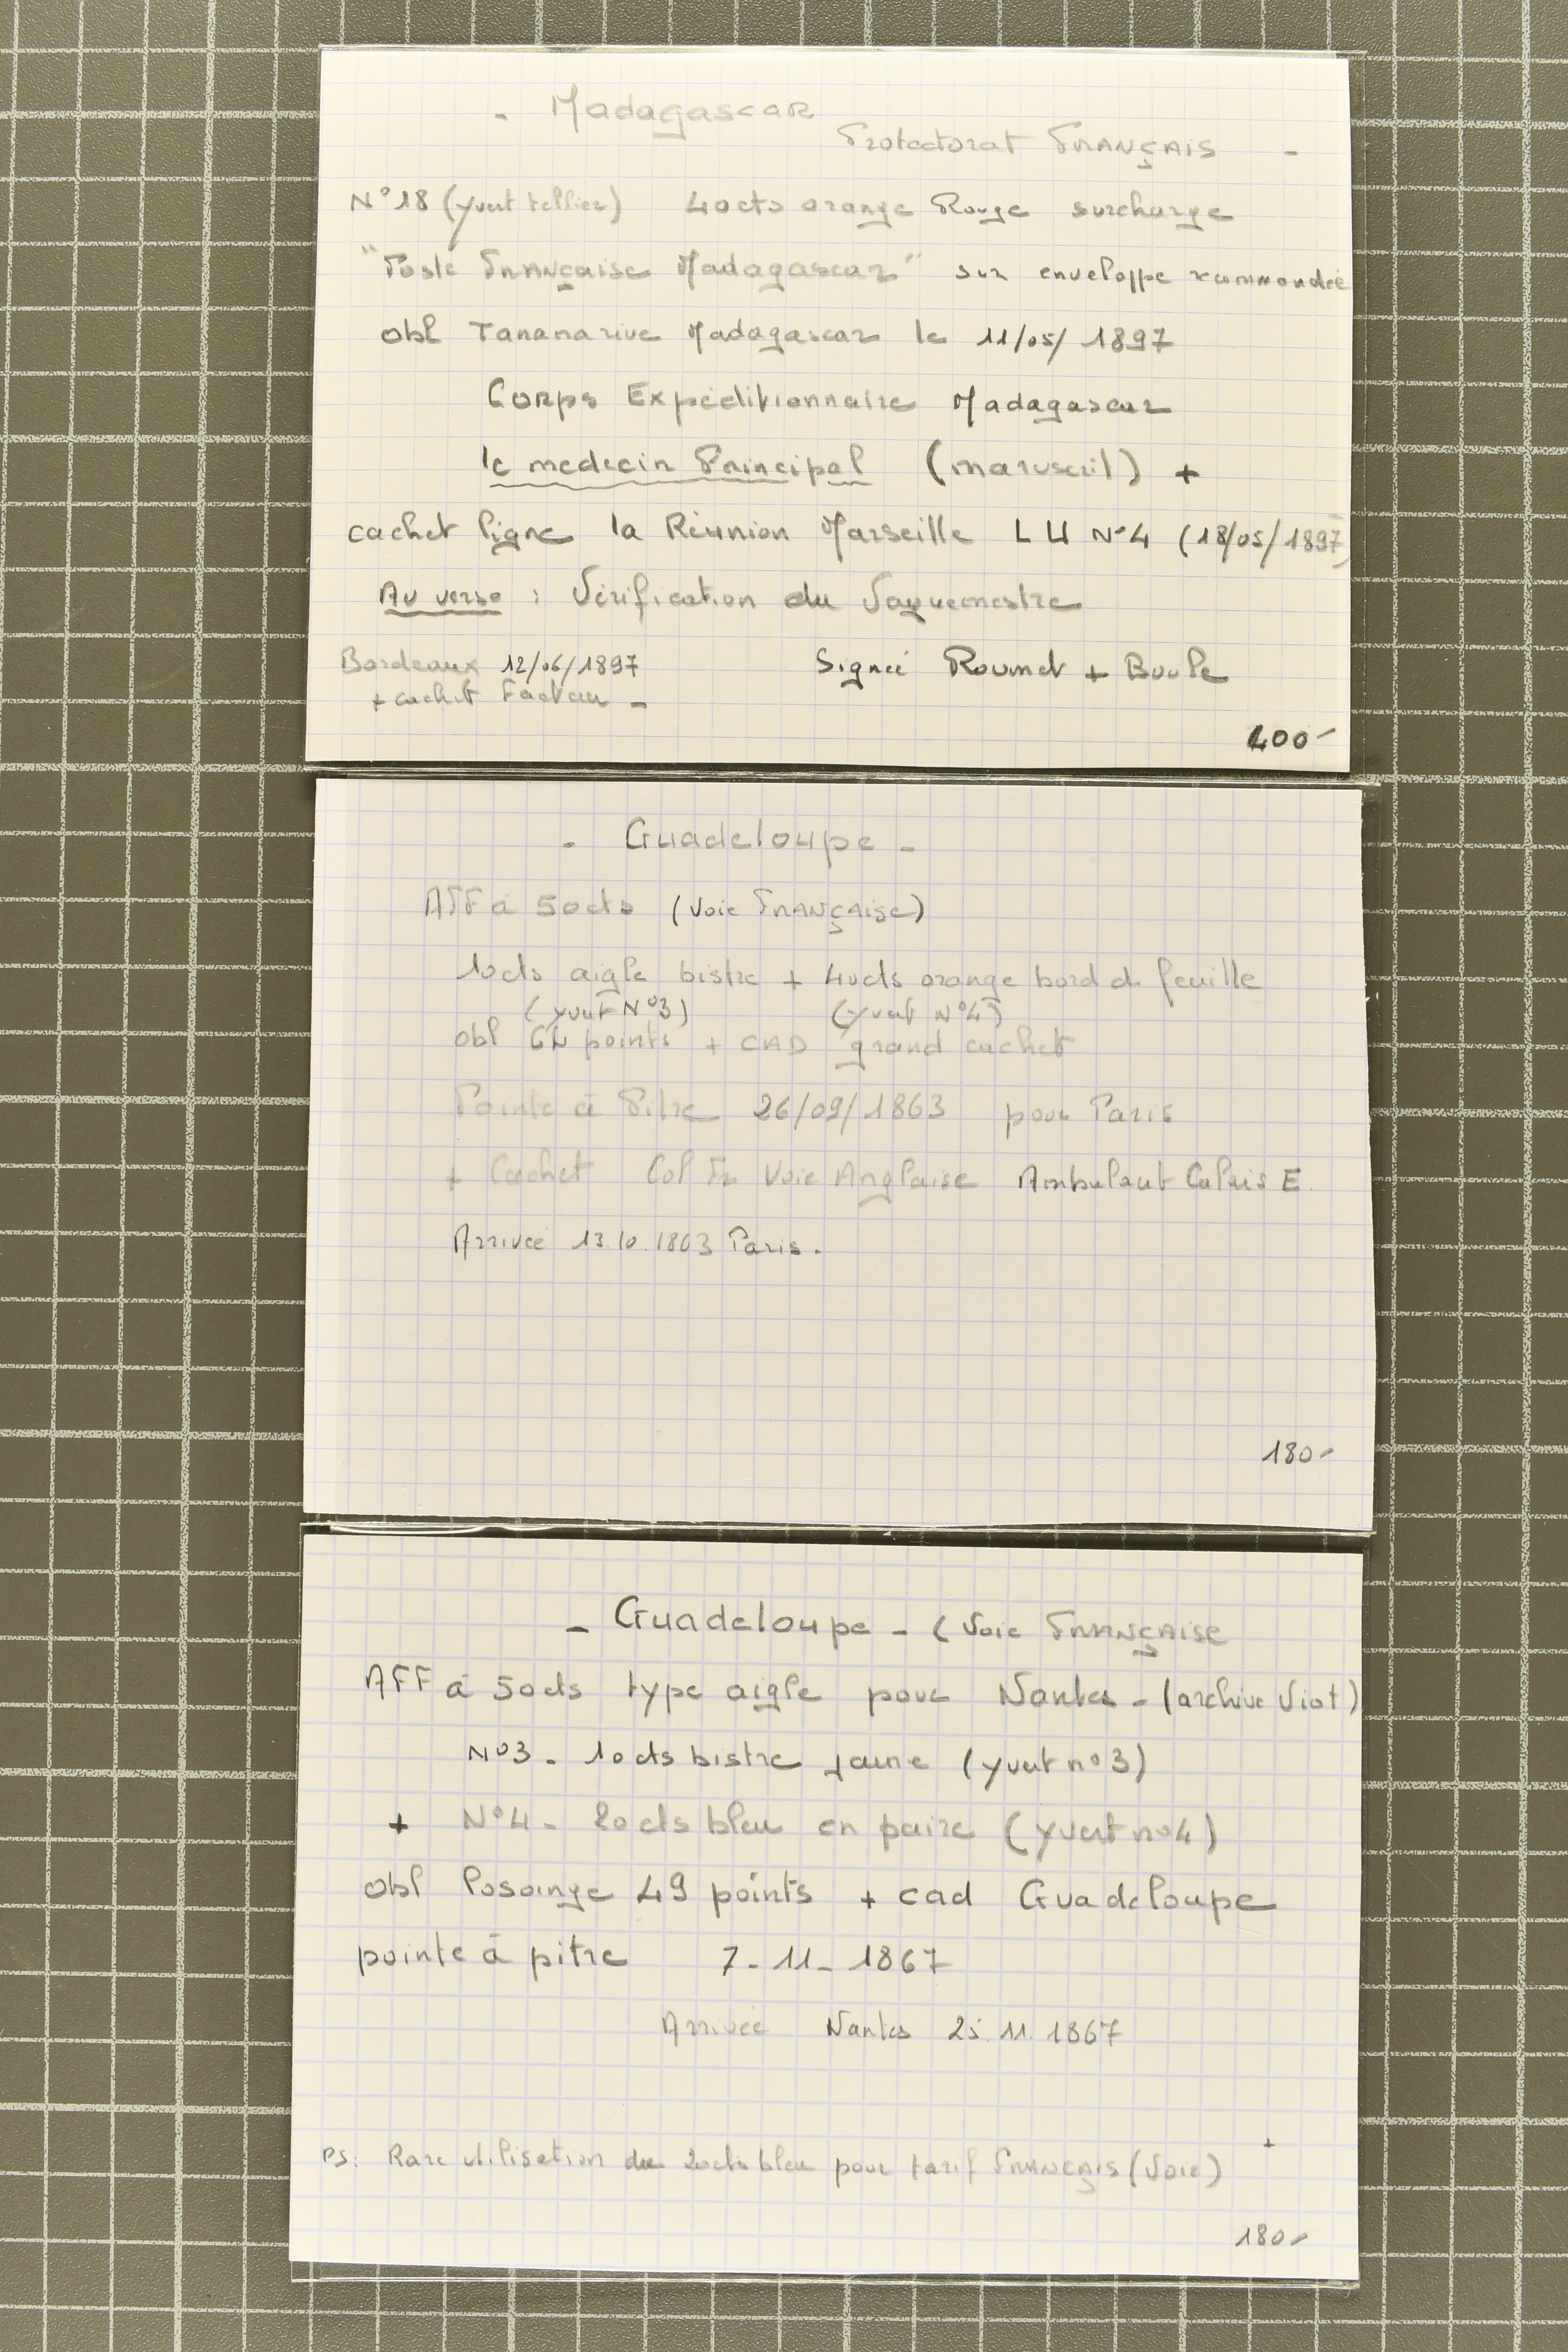 - Madagascar
Protectorat FRANÇAIS -
N°18 (yvert tellier) 40cts orange Rouge surcharge
"Poste FRANÇaise Madagascar" sur enveloppe recommandée
obl Tananarive Madagascar le 11/05/1897
Corps Expéditionnaire Madagascar
le medecin Principal (manuscrit) +
cachet ligne la Réunion Marseille LU N°4 (18/05/1897)
Au verso : Vérification du Vaguemestre
Bordeaux 12/06/1897 Signé Roumet + Boule
+ cachet Facteur -
400-
- Guadeloupe -
AFF à 50cts (Voie FRANÇAise)
10cts aigle bistre + 40cts orange bord d feuille
(yvert N°3) (yvert N°4)
obl 64 points + CAD grand cachet
Pointe à Pitre 26/09/1863 pour Paris
+ Cachet Col Fr Voie Anglaise Ambulant Calais E
Arrivée 13.10.1863 Paris.
180-
- Guadeloupe - (Voie FRANÇAISE
AFF à 50cts type aigle pour Nantes - (archive Viot)
N°3 - 10cts bistre jaune (yvert n°3)
+ N°4 - 20cts bleu en paire (yvert n°4)
obl losange 49 points + cad Guadeloupe
pointe à pitre 7-11-1867
Arrivée Nantes 25.11.1867
PS: Rare utilisation du 20cts bleu pour tarif FRANÇAIS (Voie)
180-